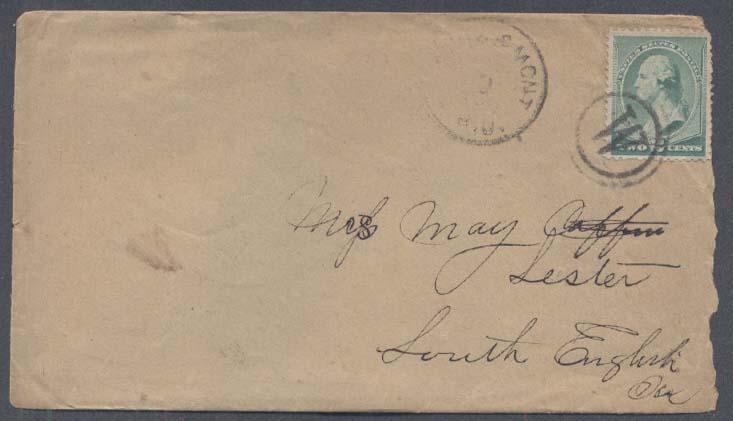 & MONT
R.P.O.
UNITED STATES POSTAGE
W
TWO CENTS
Mrs May
Lester
South English
Ioa